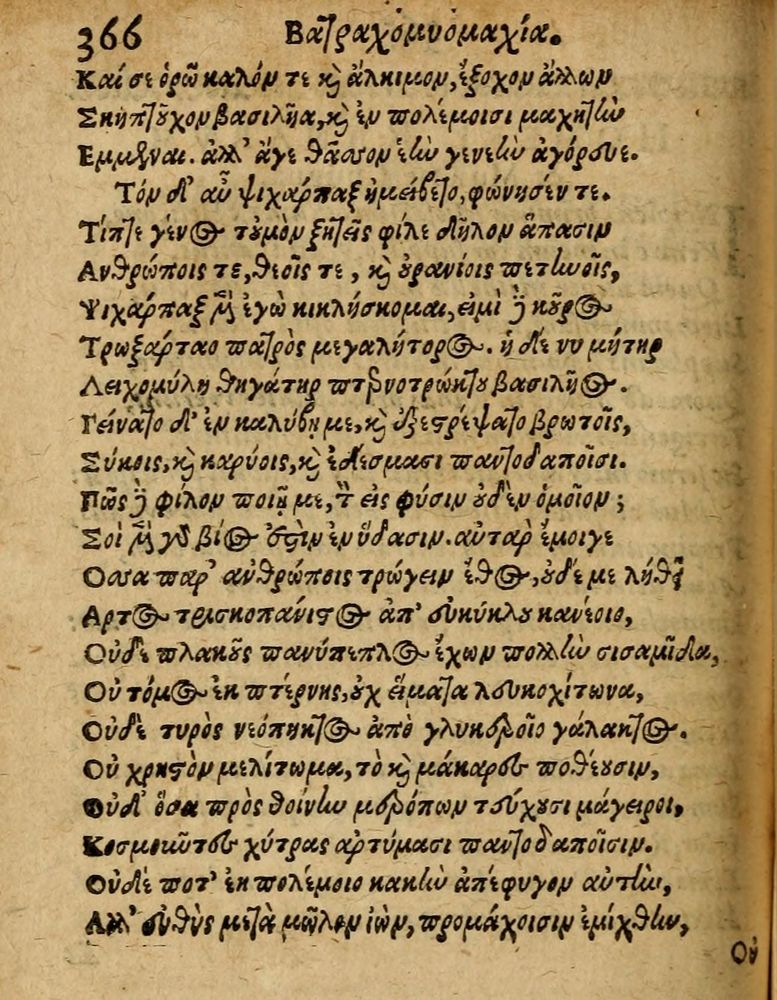 366 Βατραχομυομαχία.
Καί σε ὁρῶ καλόν τε καὶ ἄλκιμον, ἔξοχον ἄλλων
Σκηπτοῦχον βασιλῆα, καὶ ἐν πολέμοισι μαχητὼ
Εμμεναι. ἀλλ' ἄγε θᾶσσον ἑὼ γενεὼ ἀγόρευε.
Τόν δ' αὖ ψιχάρπαξ ἠμείβετο, φώνησέν τε.
Τίπτε γένος τοὐμὸν ζητεῖς φίλε δῆλον ἅπασιν
Ανθρώποις τε, θεοῖς τε, καὶ οὐρανίοις πετεωοῖς,
Ψιχάρπαξ μὲν ἐγὼ κικλήσκομαι, εἰμὶ δὲ κοῦρος
Τρωξάρταο πατρὸς μεγαλήτορος. ἡ δέ νυ μήτηρ
Λειχομύλη θηγάτηρ πτερνοτρώκτου βασιλῆος.
Γείνατο δ' ἐν καλύβῃ με, καὶ ἐξεθρέψατο βρωτοῖς,
Σύκοις, καὶ καρύοις, καὶ ἐδέσμασι παντοδαποῖσι.
Πῶς δὲ φίλον ποιῇ με, τὸν εἰς φύσιν οὐδὲν ὁμοῖον;
Σοὶ μὲν γὰρ βίος ἐστὶν ἐν ὕδασιν. αὐτὰρ ἔμοιγε
Οσσα παρ' ανθρώποις τρώγειν ἔθος, οὐδέ με λήθει
Αρτος τρισκοπάνιστος ἀπ' εὐκύκλου κανέοιο,
Οὐδὲ πλακοῦς τανύπεπλος ἔχων πολλὼ σισαμῖδα,
Οὐ τόμος ἐκ πτέρνης, οὐχ εἵματα λευκοχίτωνα,
Οὐδὲ τυρὸς νεόπηκτος ἀπὸ γλυκεροῖο γάλακτος.
Οὐ χρηστὸν μελίτωμα, τὸ καὶ μάκαρες ποθέουσιν,
Οὐδ' ὅσα πρὸς θοίνὼ μερόπων τεύχουσι μάγειροι,
Κοσμοῦντες χύτρας ἀρτύμασι παντοδαποῖσιν.
Οὐδέ ποτ' ἐκ πολέμοιο κακὼ ἀπέφυγον αὐτὼ,
Αλλ' εὐθὺς μετὰ μῶλον ἰὼν, προμάχοισιν ἐμίχθων,
Οὐ